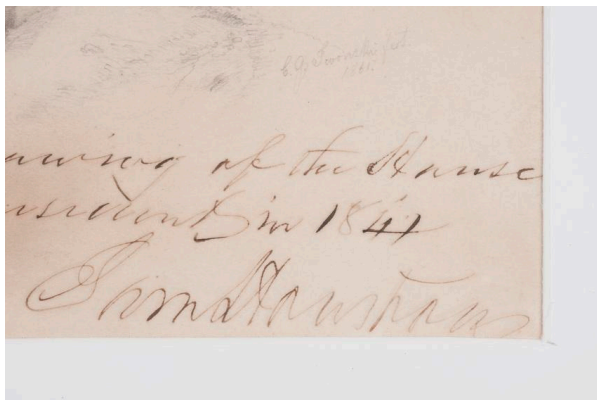 1861.
awing of the House
esident in 1841
Sam Houston